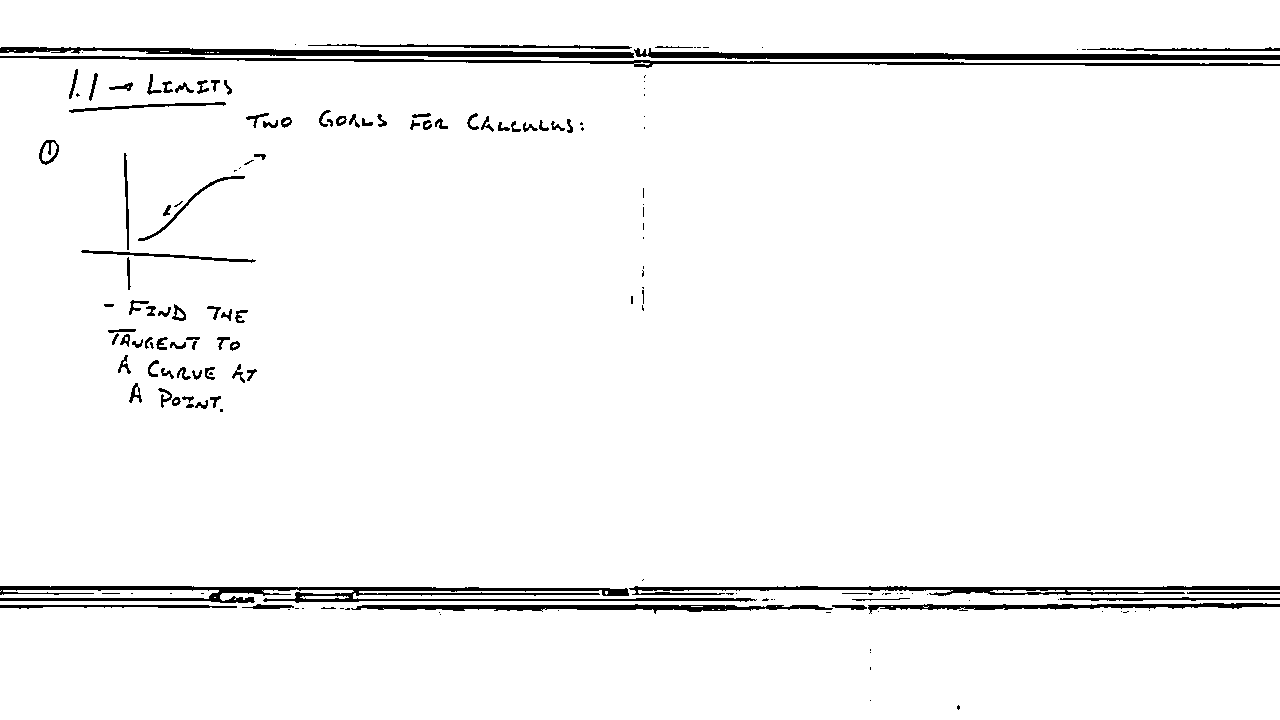 1.1 → LIMITS
TWO GOALS FOR CALCULUS:
①
- FIND THE
TANGENT TO
A CURVE AT
A POINT.